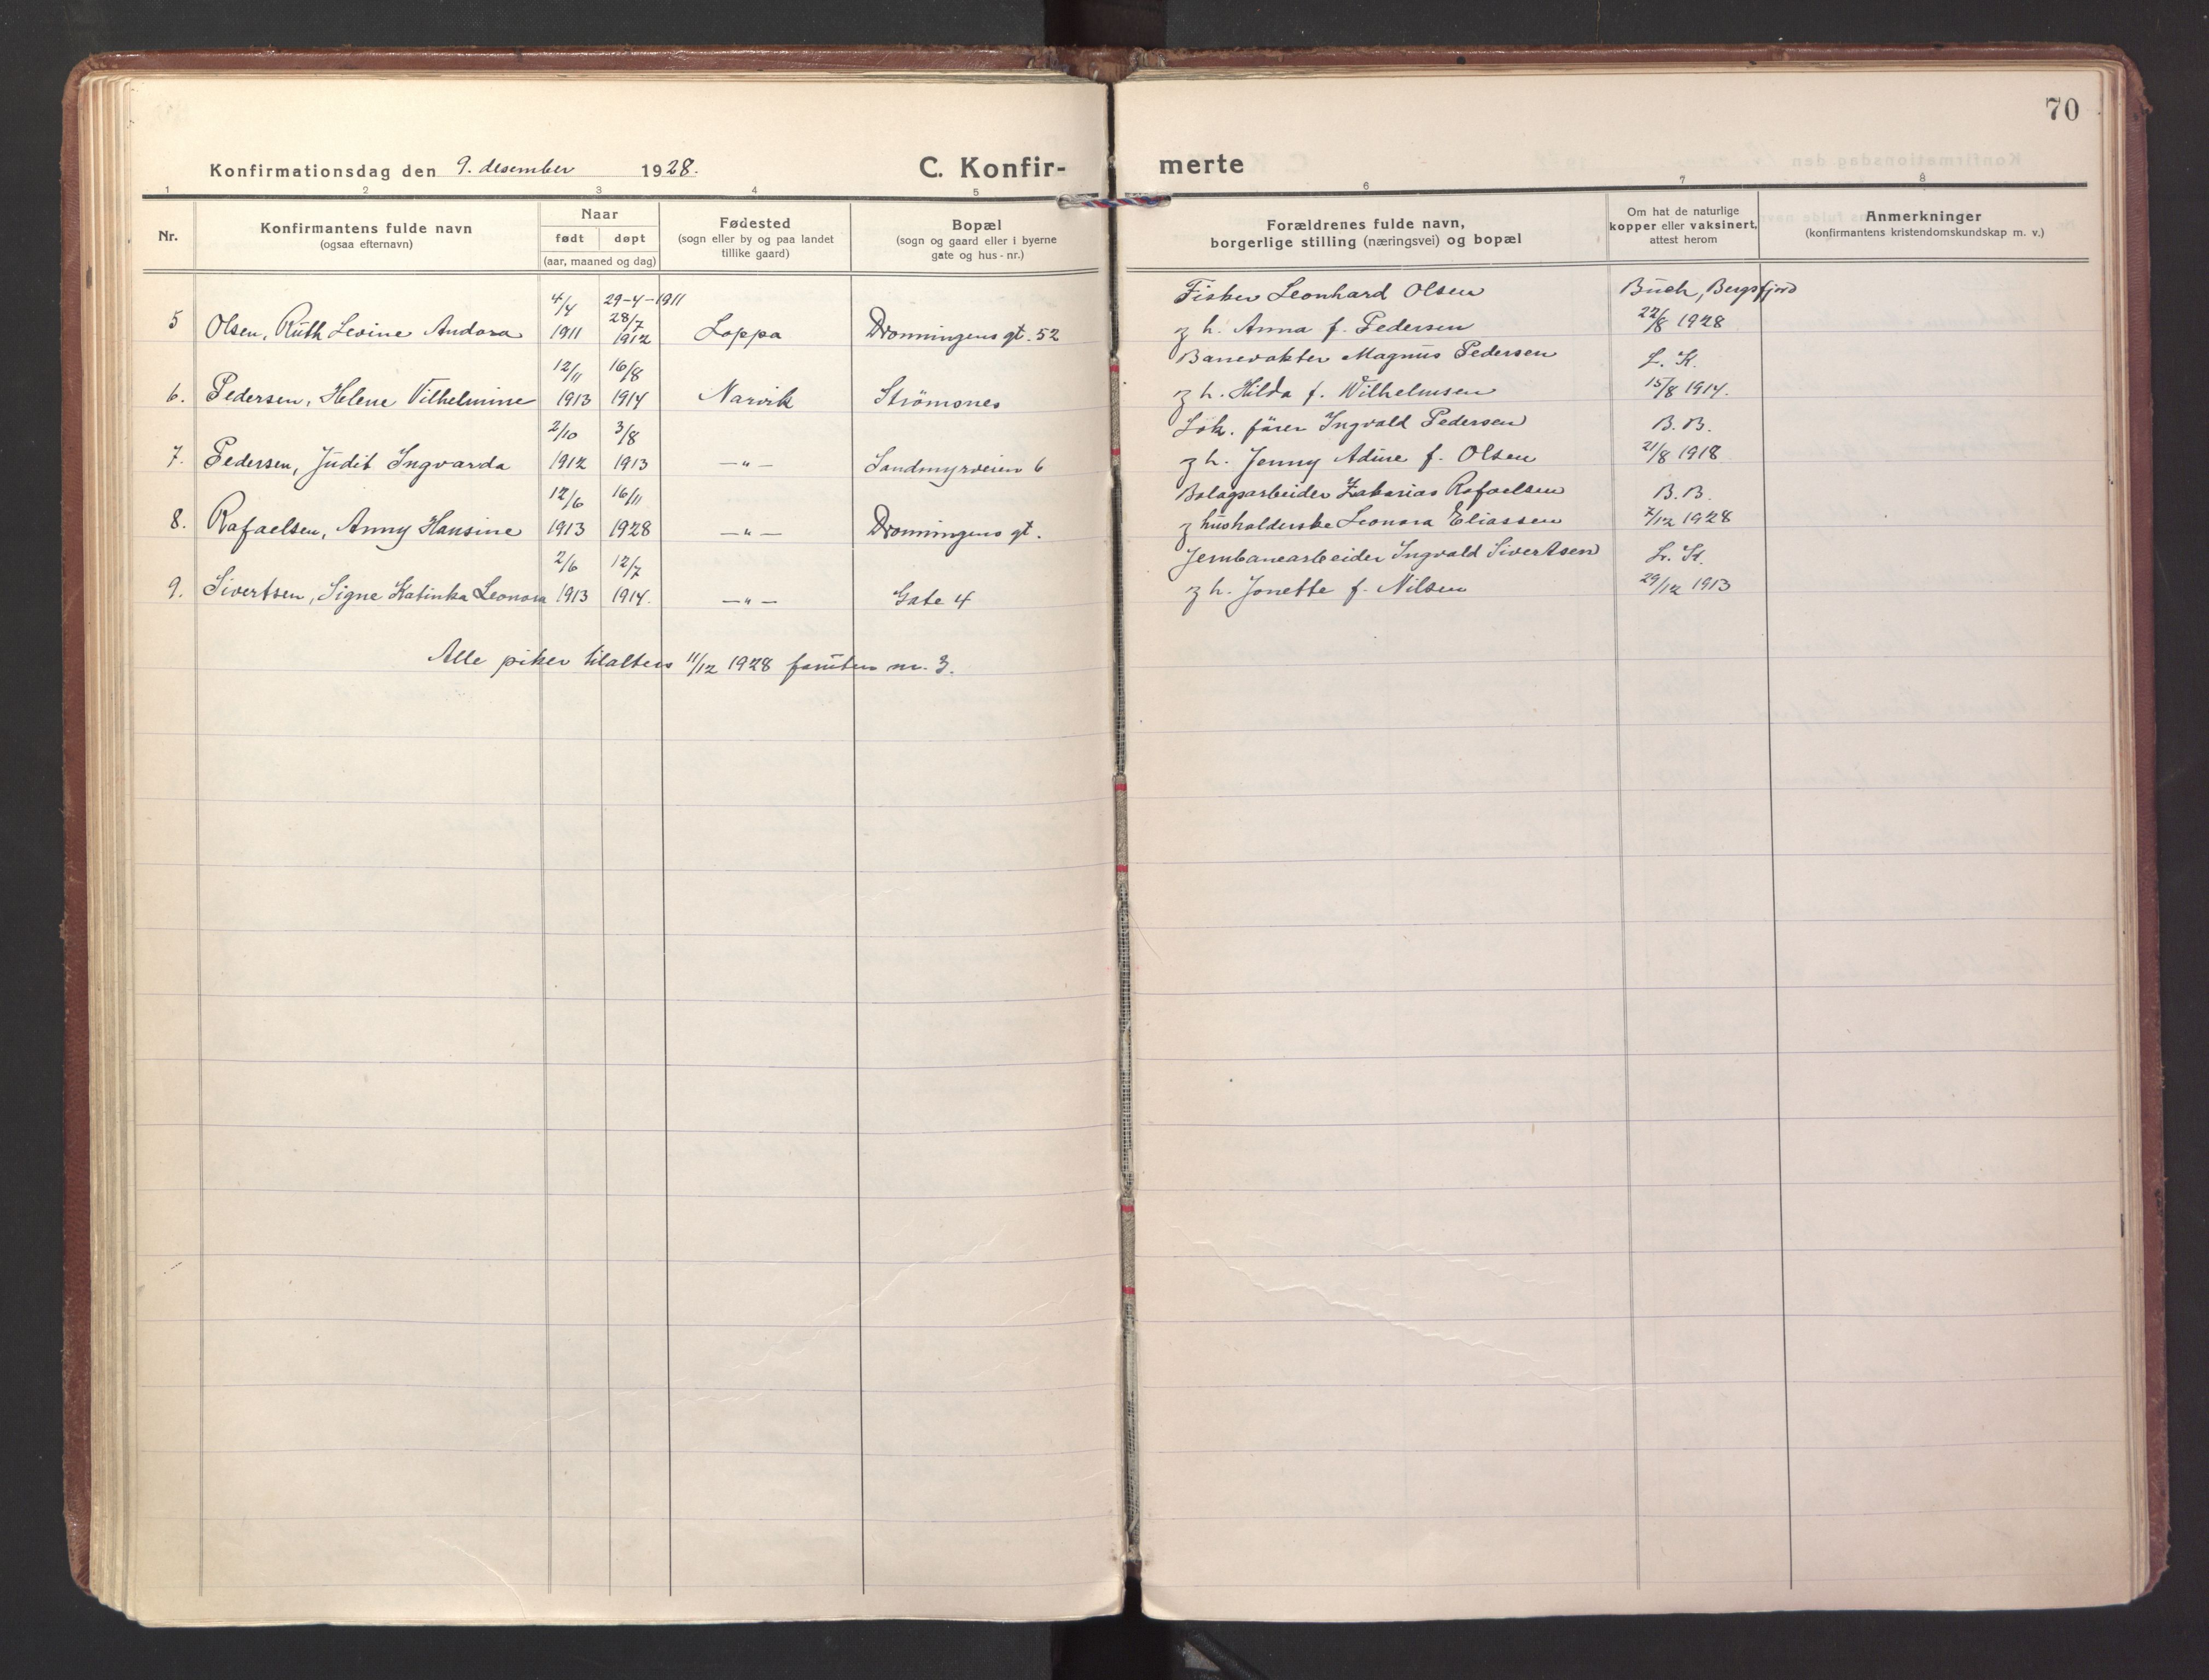 70
Konfirmationsdag den 9. desember 1928.
C. Konfir-
merte
1 2 3 4 5 6 7 8
Nr.
Konfirmantens fulde navn
(ogsaa efternavn)
Naar
født døpt
(aar, maaned og dag)
Fødested
(sogn eller by og paa landet
tillike gaard)
Bopæl
(sogn og gaard eller i byerne
gate og hus-nr.)
Forældrenes fulde navn,
borgerlige stilling (næringsvei) og bopæl
Om hat de naturlige
kopper eller vaksinert,
attest herom
Anmerkninger
(konfirmantens kristendomskundskap m. v.)
4/4 29-4-1911 Fisker Leonhard Olsen Buch, Bergsfjord
28/7
5 Olsen, Ruth Levine Andora 1911 1912 Loppa Dronningens gt. 52 g h. Anna f. Pedersen 22/8 1928
12/11 16/8 Banevokter Magnus Pedersen L. K.
6. Pedersen, Helene Vilhelmine 1913 1914 Narvik Strömsnes g h. Hilda f. Wilhelmsen 15/8 1914.
2/10 3/8 Lok. fører Ingvald Pedersen B. B.
7. Pedersen, Judit Ingvarda 1912 1913 —"— Sandmyrveien 6 g h. Jenny Adine f. Olsen 21/8 1918
12/6 16/11 Bolagsarbeider Zakarias Rafaelsen B. B.
8. Rafaelsen, Anny Hansine 1913 1928 —"— Dronningens gt. g husholderske Leonora Eliassen 7/12 1928
2/6 12/7 Jernbanearbeider Ingvald Sivertsen L. K.
9. Sivertsen, Signe Katinka Leonora 1913 1914. —"— Gate 4 g h. Jonette f. Nilsen 29/12 1913
Alle piker tilalters 11/12 1928 foruten nr. 3.